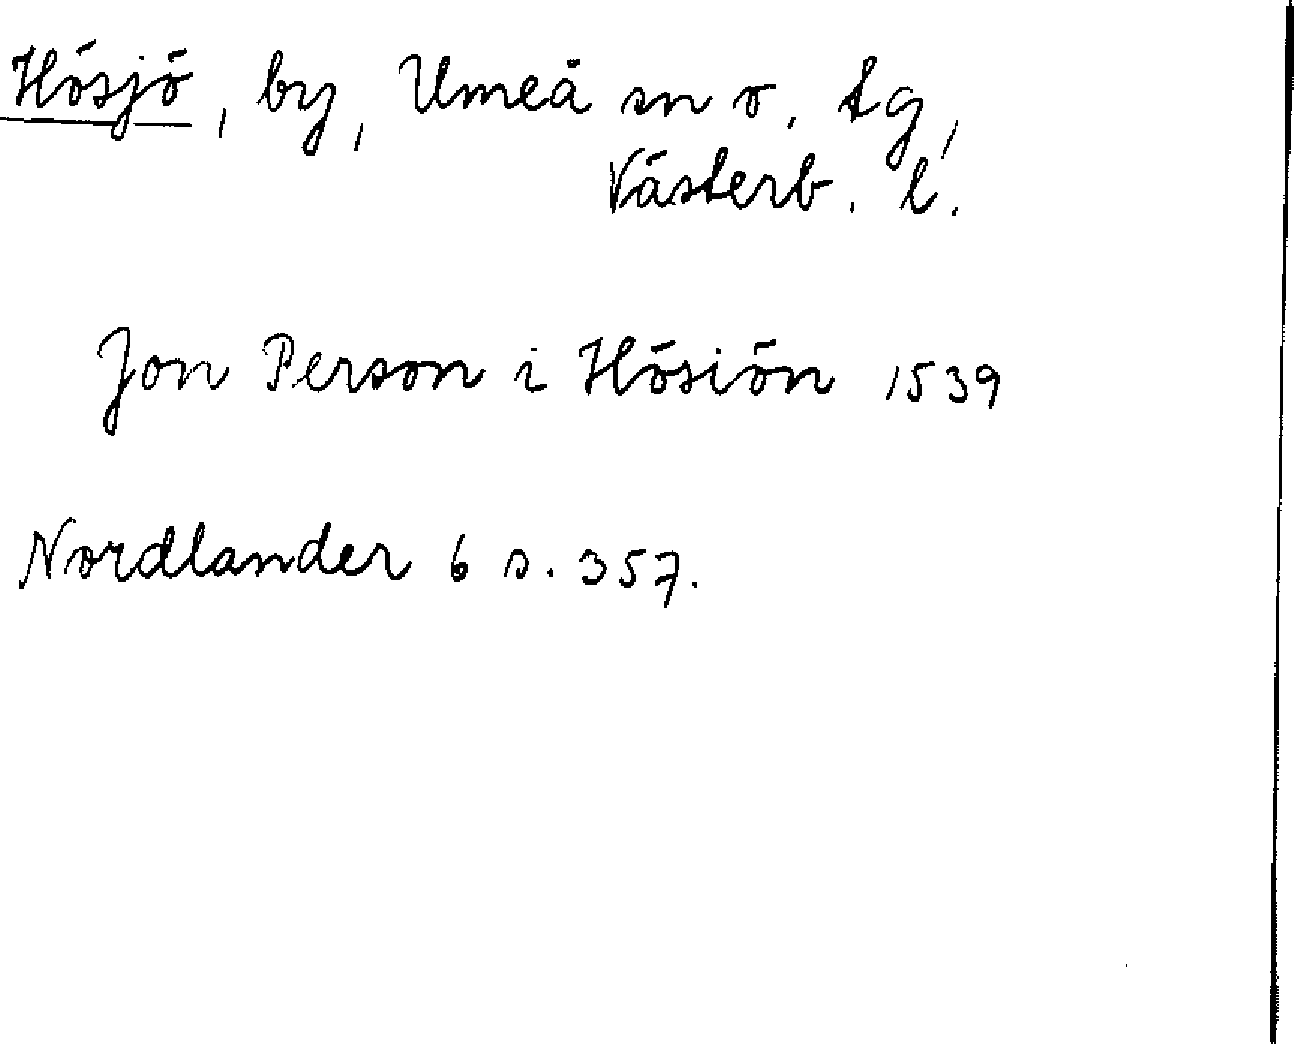 Hösjö, by, Umeå sn o. tg,
Västerb. l.
Jon Person i Hösiön 1539
Nordlander 6 s. 357.